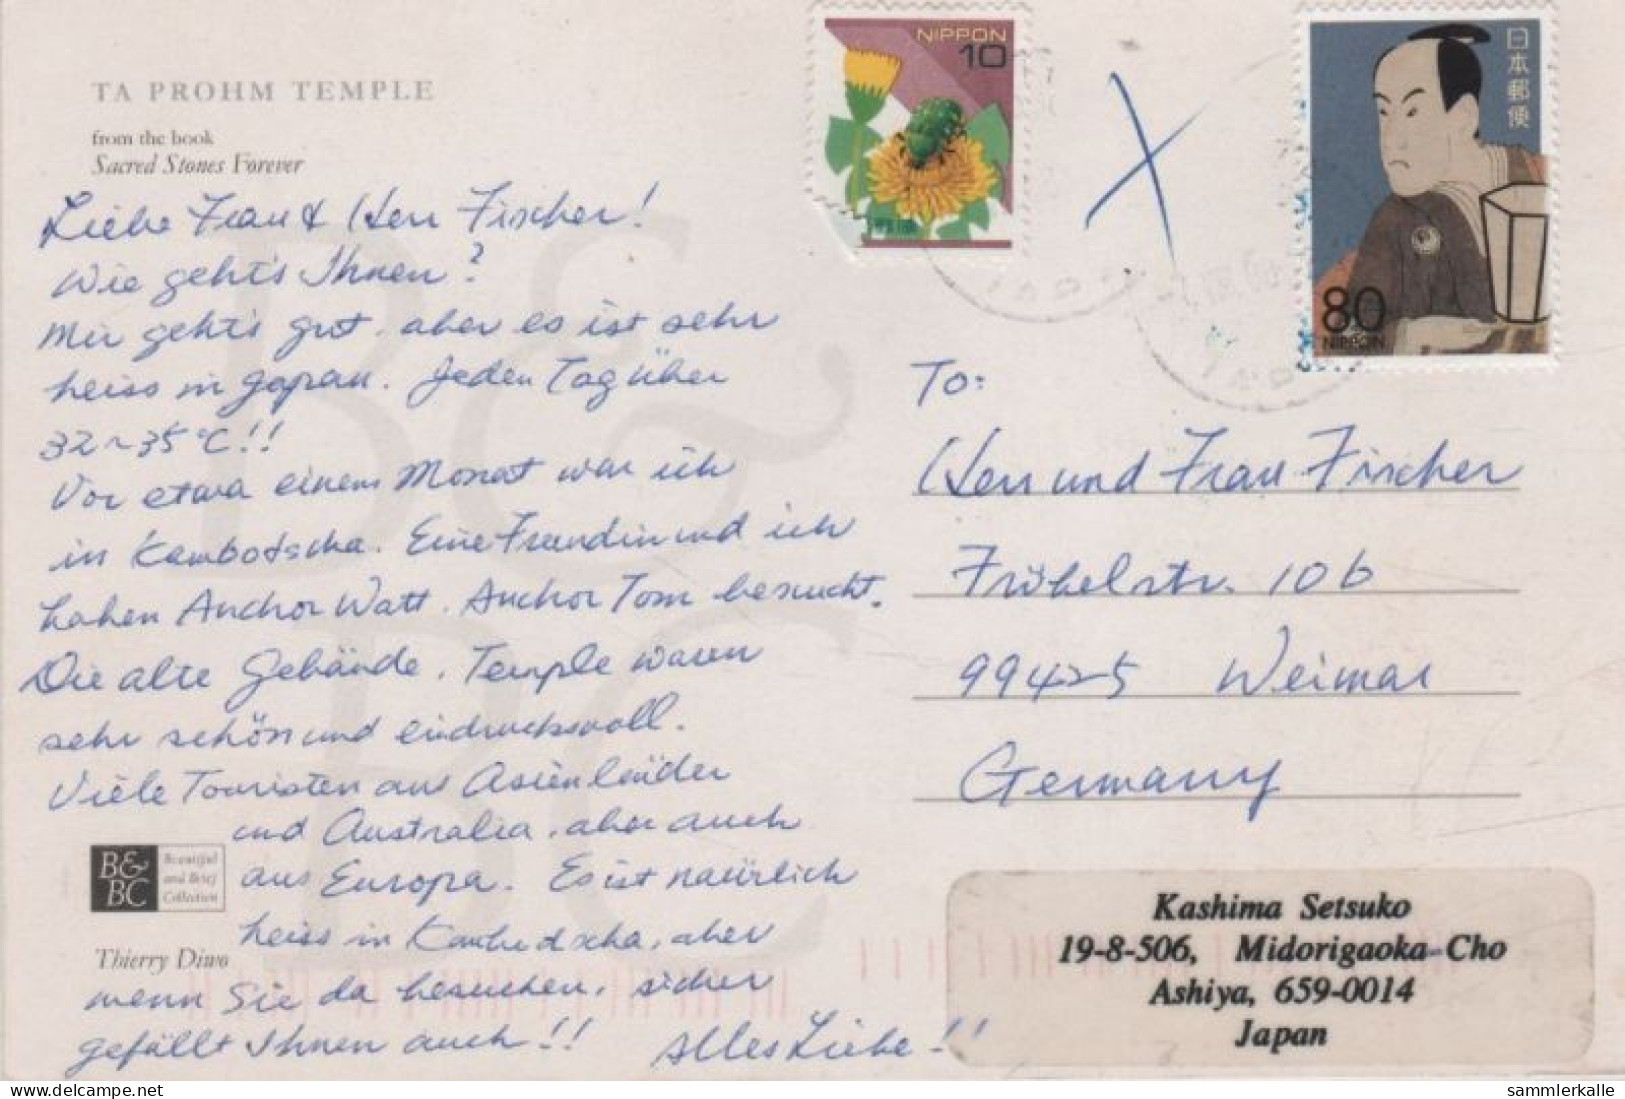 NIPPON
10
日本郵便
80
NIPPON
TA PROHM TEMPLE
from the book
Sacred Stones Forever
Liebe Frau & Herr Fischer!
Wie geht's Ihnen?
Mir geht's gut, aber es ist sehr
heiss in Japan. Jeden Tag über
32~35°C!!
Vor etwa einem Monat war ich
in Kambodscha. Eine Freundin und ich
haben Anchor Watt, Anchor Tom besucht.
Die alte Gebände, Temple waren
sehr schön und eindrucksvoll.
Viele Touristen aus Asienländer
und Australia, aber auch
aus Europa. Es ist natürlich
heiss in Kambodscha, aber
wenn Sie da besuchen, sicher
gefällt Ihnen auch!! Alles Liebe!!
B&BC
Beautiful
and Brief
Collection
Thierry Diwo
To:
Herr und Frau Fischer
Fröbelstr. 10b
99425 Weimar
Germany
Kashima Setsuko
19-8-506, Midorigaoka-Cho
Ashiya, 659-0014
Japan
© www.delcampe.net
sammlerkalle